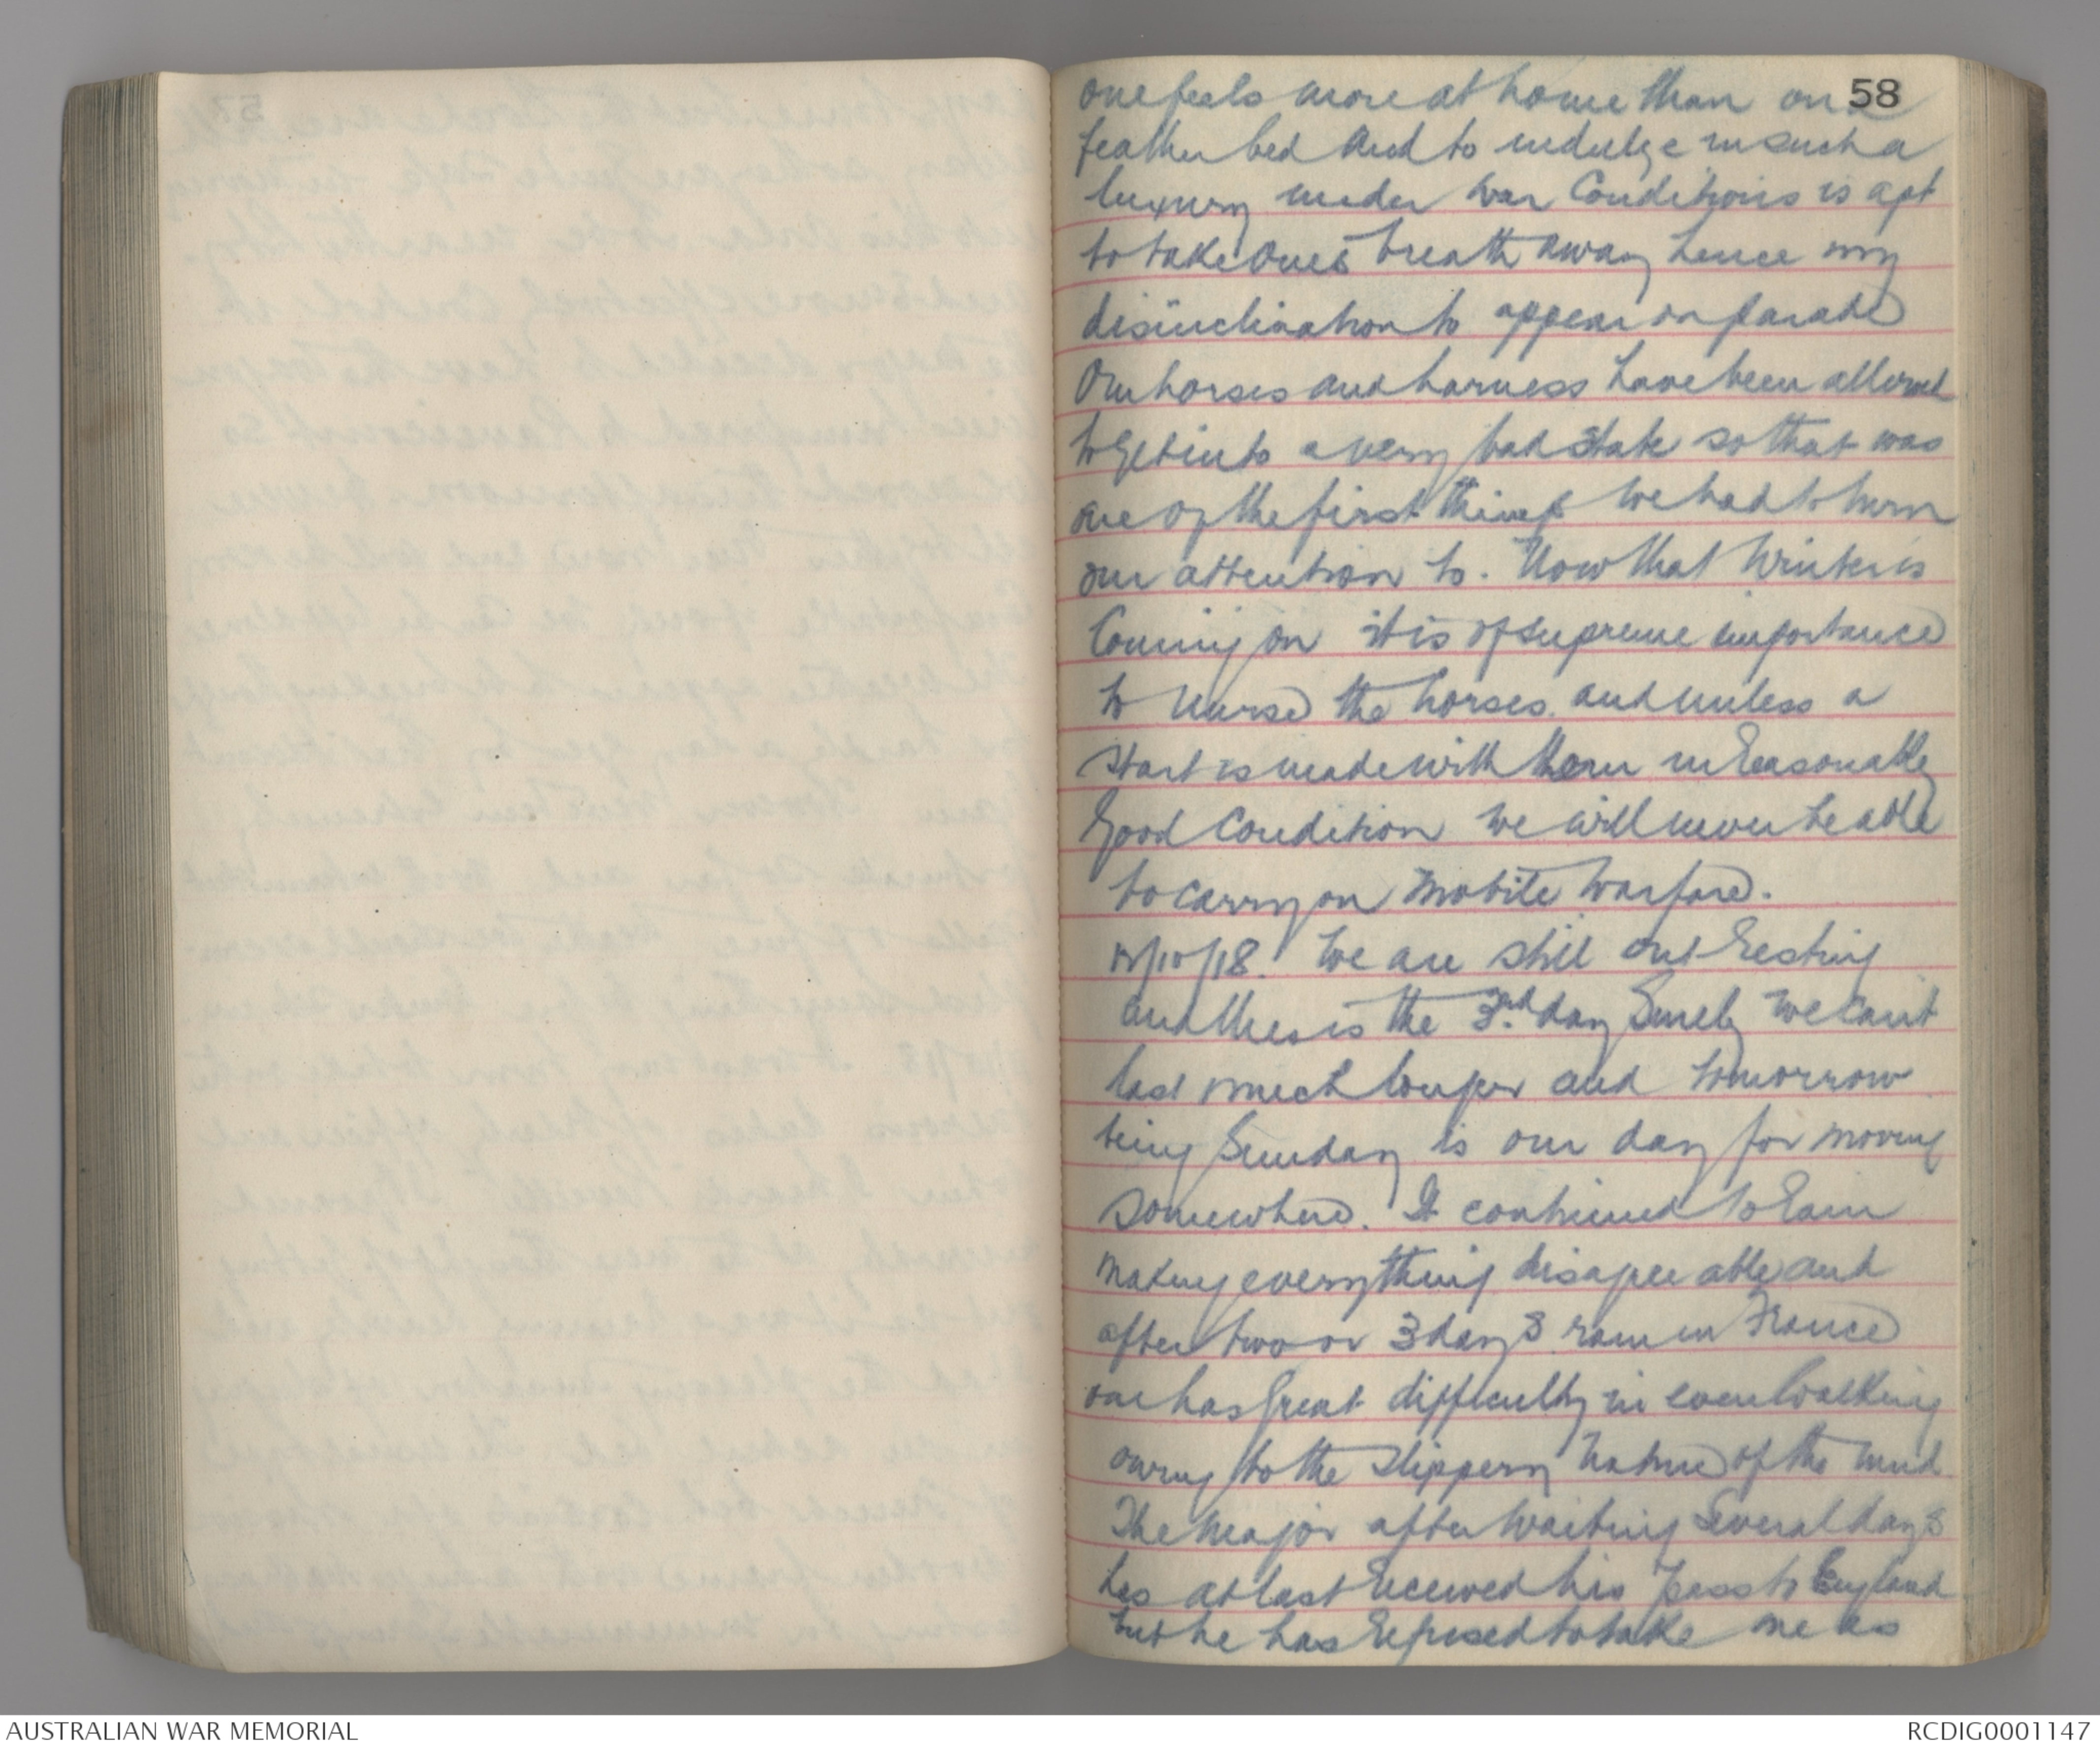 58
one feels more at home than on a
feather bed and to indulge in such a
luxury under war Conditions is apt
to take ones breath away hence my
disinclination to appear on parade
Our horses and harness have been allowed
to get into a very bad state so that was
one of the first things we had to turn
our attention to. Now that Winter is
Coming on it is of supreme importance
to nurse the horses and unless a
start is made with them in reasonably
good Condition we will never be able
to carry on mobile warfare.
/10/18. We are still out resting
and this is the 3rd day Surely we cant
last much longer and tomorrow
being Sunday is our day for moving
somewhere. It continued to rain
making everything disagreeable and
after two or 3 days rain in France
one has great difficulty in even Walking
owing to the slippery nature of the mud
The Major after waiting several days
has at last received his pass to England
but he has refused to take me as
AUSTRALIAN WAR MEMORIAL
RCDIG0001147